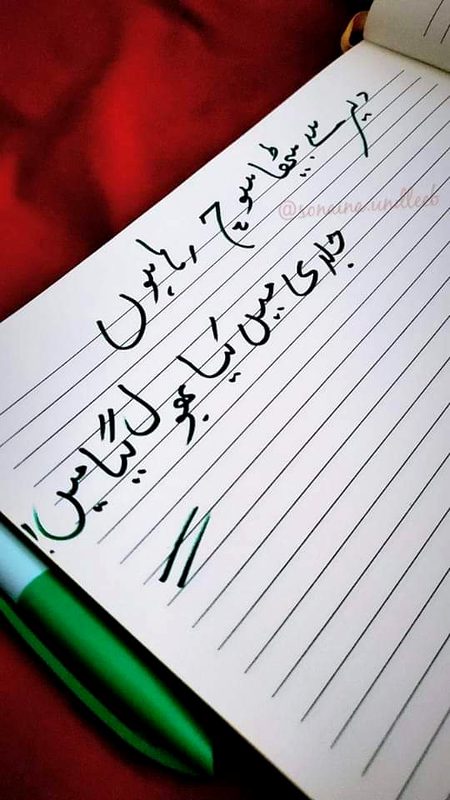 دیر سے بیٹھا سوچ رہا ہوں
جلدی میں کیا بھول گیا میں!
@sonaina.undlleeb